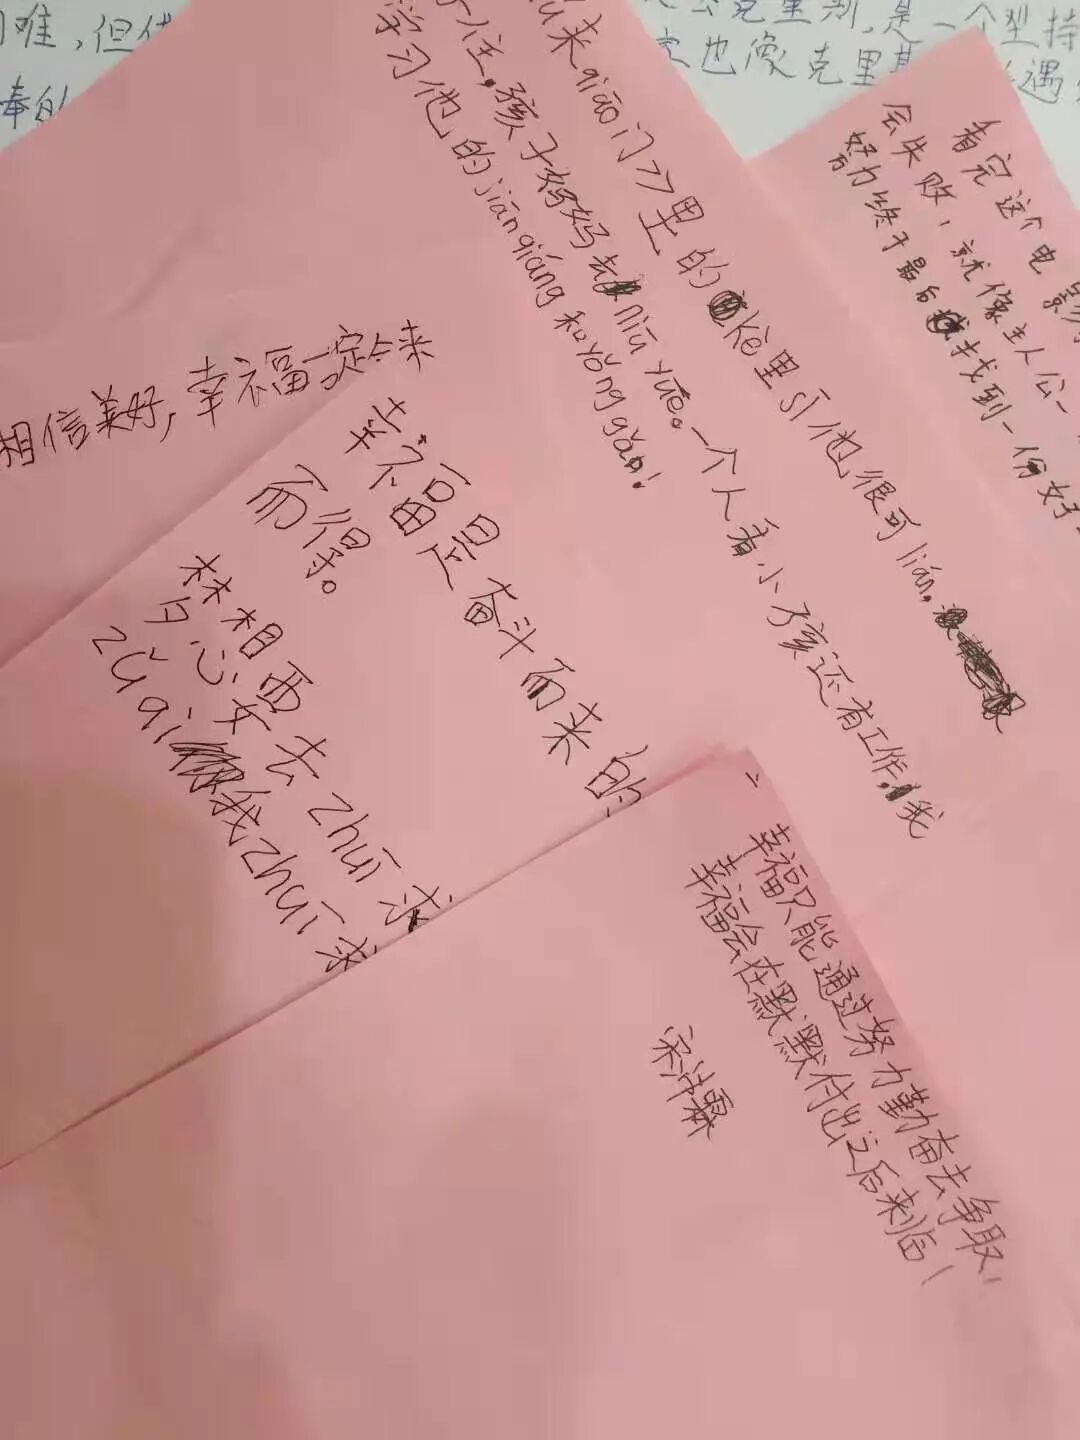 难，但
公克里斯，是一个坚持
也像克里斯
遇
看完这个电影
会失败，就像主人公一
努力终于最后才找到一份好
来qiāo门了里的kè里sī他也很可lián，
住，孩子妈妈去niǔ yuē。一个人看小孩还有工作，我
学习他的jiān qiáng和yǒng gǎn！
相信美好，幸福一定会来
幸福是奋斗而来的
而得。
梦想要去zhuī求
zǔ ai我zhuī求
幸福只能通过努力勤奋去争取，
幸福会在默默付出之后来临！
宋沛霖